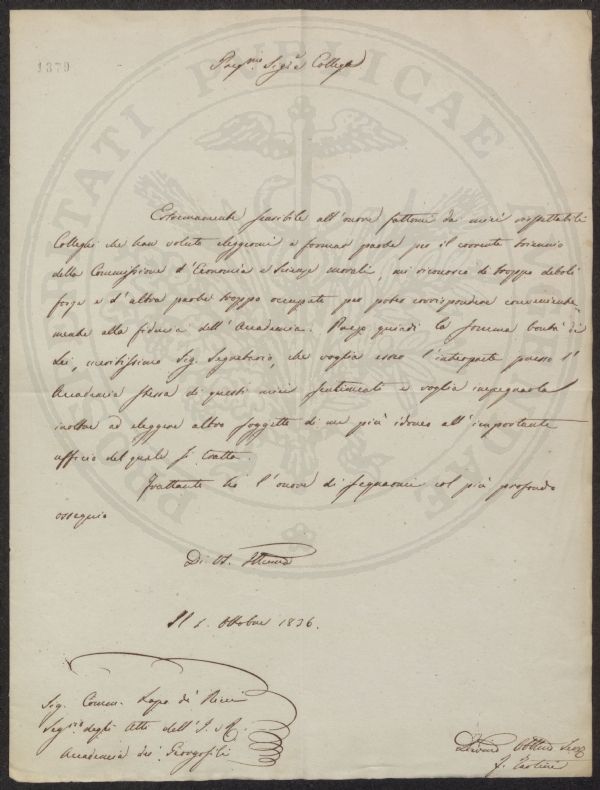 1379
Preg.mo Sig.e Collega
Estremamente sensibile all'onore fattomi da miei rispettabili
Colleghi che han voluto eleggermi a formar parte per il corrente triennio
della Commissione d'Economia e Scienze morali, mi riconosco di troppo deboli
forze e d'altra parte troppo occupato per poter corrispondere conveniente
mente alla fiducia dell'Accademia. Prego quindi la somma bontà di
Lei, meritissimo Sig. Segretario, che voglia essere l'interprete presso l'
Accademia stessa di questi miei sentimenti e voglia impegnarla
inoltre ad eleggere altro soggetto di me più idoneo all'importante
ufficio del quale si tratta.
Frattanto ho l'onore di segnarmi col più profondo
ossequio
Di
Il 1. Ottobre 1836.
Sig. Comm. Lapo de' Ricci
Seg.rio degli Atti dell'I. e R.
Accademia dei Georgofili
Devmo Obblmo Serv
PROSPERITATI PUBLICAE AUGENDAE